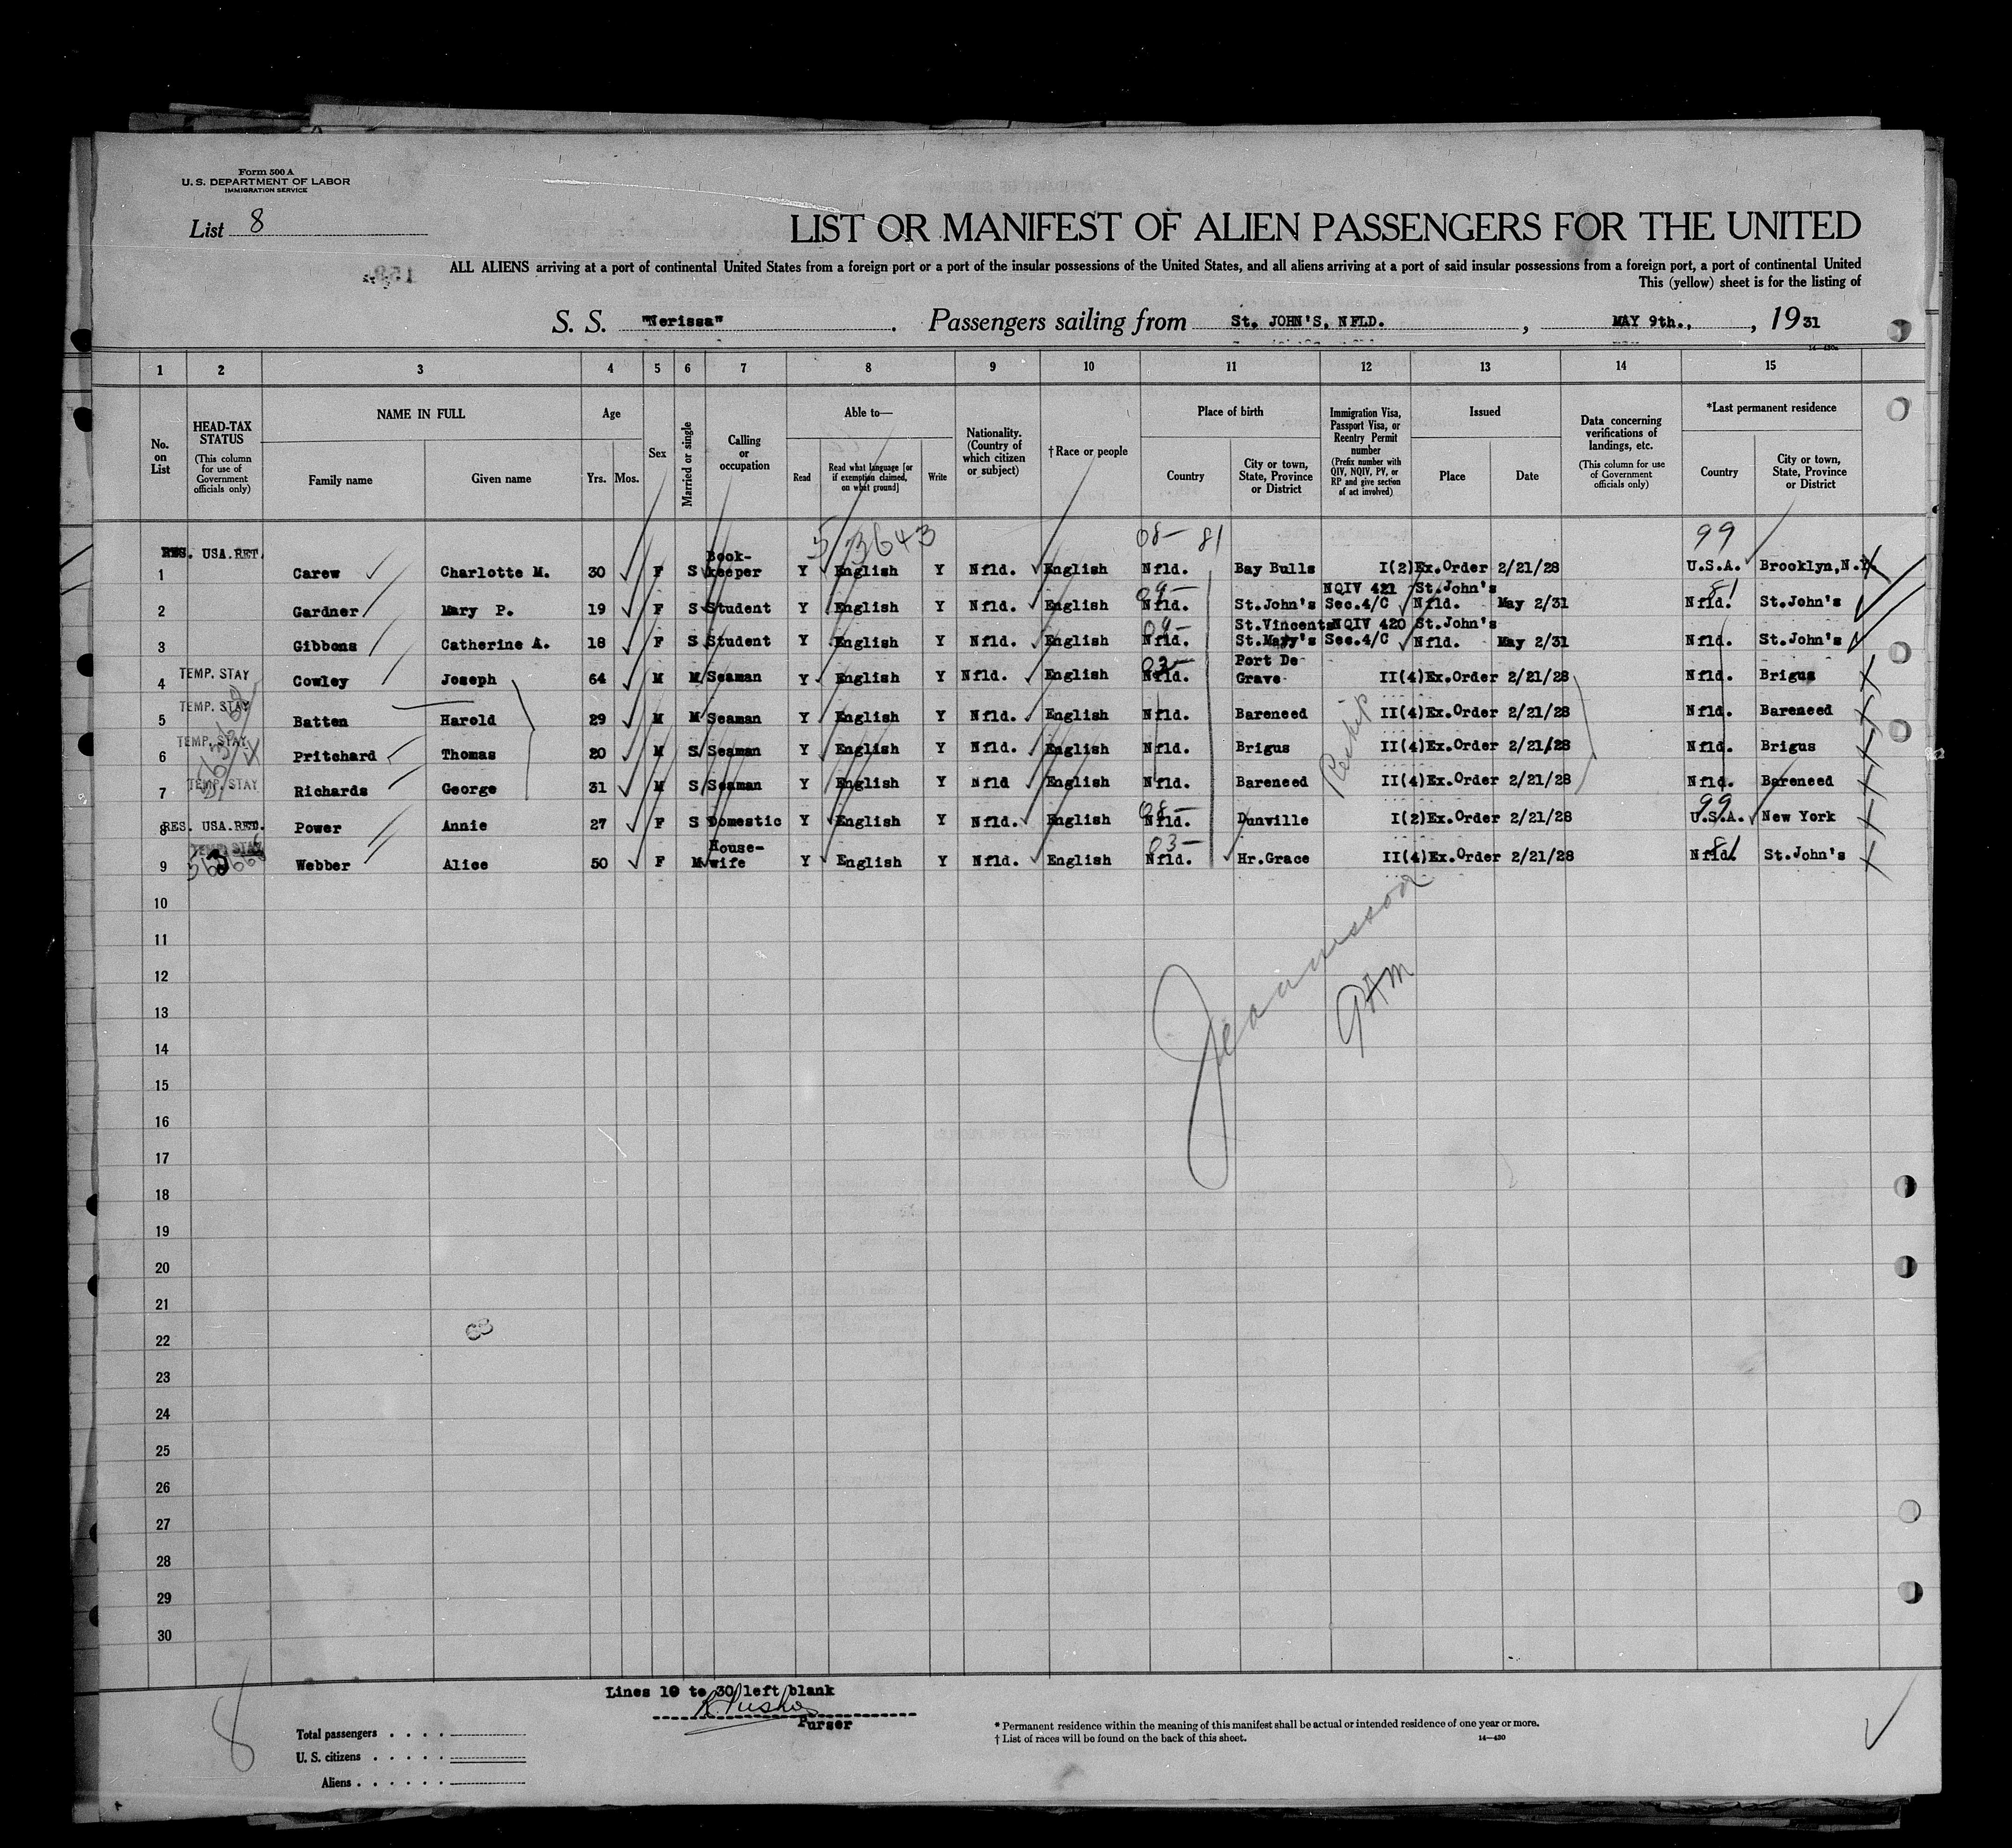 Form 500 A
U. S. DEPARTMENT OF LABOR
IMMIGRATION SERVICE
List 8
LIST OR MANIFEST OF ALIEN PASSENGERS FOR THE UNITED
ALL ALIENS arriving at a port of continental United States from a foreign port or a port of the insular possessions of the United States, and all aliens arriving at a port of said insular possessions from a foreign port, a port of continental United
This (yellow) sheet is for the listing of
S. S. "Nerissa". Passengers sailing from St. JOHN'S, NFLD. , MAY 9th., , 1931
14—430a
1 2 3 4 5 6 7 8 9 10 11 12 13 14 15
No. on List
HEAD-TAX STATUS (This column for use of Government officials only)
NAME IN FULL
Family name Given name
Age
Yrs. Mos.
Sex
Married or single
Calling or occupation
Able to—
Read Read what language [or if exemption claimed, on what ground] Write
Nationality. (Country of which citizen or subject)
†Race or people
Place of birth
Country City or town, State, Province or District
Immigration Visa, Passport Visa, or Reentry Permit number (Prefix number with QIV, NQIV, PV, or RP and give section of act involved)
Issued
Place Date
Data concerning verifications of landings, etc. (This column for use of Government officials only)
*Last permanent residence
Country City or town, State, Province or District
5/3643 08- 81 99
RES. USA.RET.
1 Carew Charlotte M. 30 F S Book-keeper Y English Y Nfld. English Nfld. Bay Bulls I(2)Ex.Order 2/21/28 U.S.A. Brooklyn,N.Y.
09- 81
2 Gardner Mary P. 19 F S Student Y English Y Nfld. English Nfld. St.John's NQIV 421 Sec.4/C St.John's Nfld. May 2/31 Nfld. St.John's
09-
3 Gibbons Catherine A. 18 F S Student Y English Y Nfld. English Nfld. St.Vincents St.Mary's NQIV 420 Sec.4/C St.John's Nfld. May 2/31 Nfld. St.John's
03-
4 TEMP. STAY Cowley Joseph 64 M M Seaman Y English Y Nfld. English Nfld. Port De Grave II(4)Ex.Order 2/21/28 Nfld. Brigus
5 TEMP. STAY Batten Harold 29 M M Seaman Y English Y Nfld. English Nfld. Bareneed II(4)Ex.Order 2/21/28 Nfld. Bareneed
6 TEMP. STAY Pritchard Thomas 20 M S Seaman Y English Y Nfld. English Nfld. Brigus II(4)Ex.Order 2/21/28 Nfld. Brigus
7 TEMP. STAY Richards George 31 M S Seaman Y English Y Nfld English Nfld. Bareneed II(4)Ex.Order 2/21/28 Nfld. Bareneed
08- 99
8 RES. USA.RET. Power Annie 27 F S Domestic Y English Y Nfld. English Nfld. Dunville I(2)Ex.Order 2/21/28 U.S.A. New York
03- 81
9 TEMP. STAY Webber Alice 50 F M House-wife Y English Y Nfld. English Nfld. Hr.Grace II(4)Ex.Order 2/21/28 Nfld. St.John's
10
11
12
13
14
15
16
17
18
19
20
21
22
23
24
25
26
27
28
29
30
63
GAM
8
Lines 10 to 30 left blank
Purser
Total passengers . . . .
U. S. citizens . . . . .
Aliens . . . . . .
* Permanent residence within the meaning of this manifest shall be actual or intended residence of one year or more.
† List of races will be found on the back of this sheet.
14—430